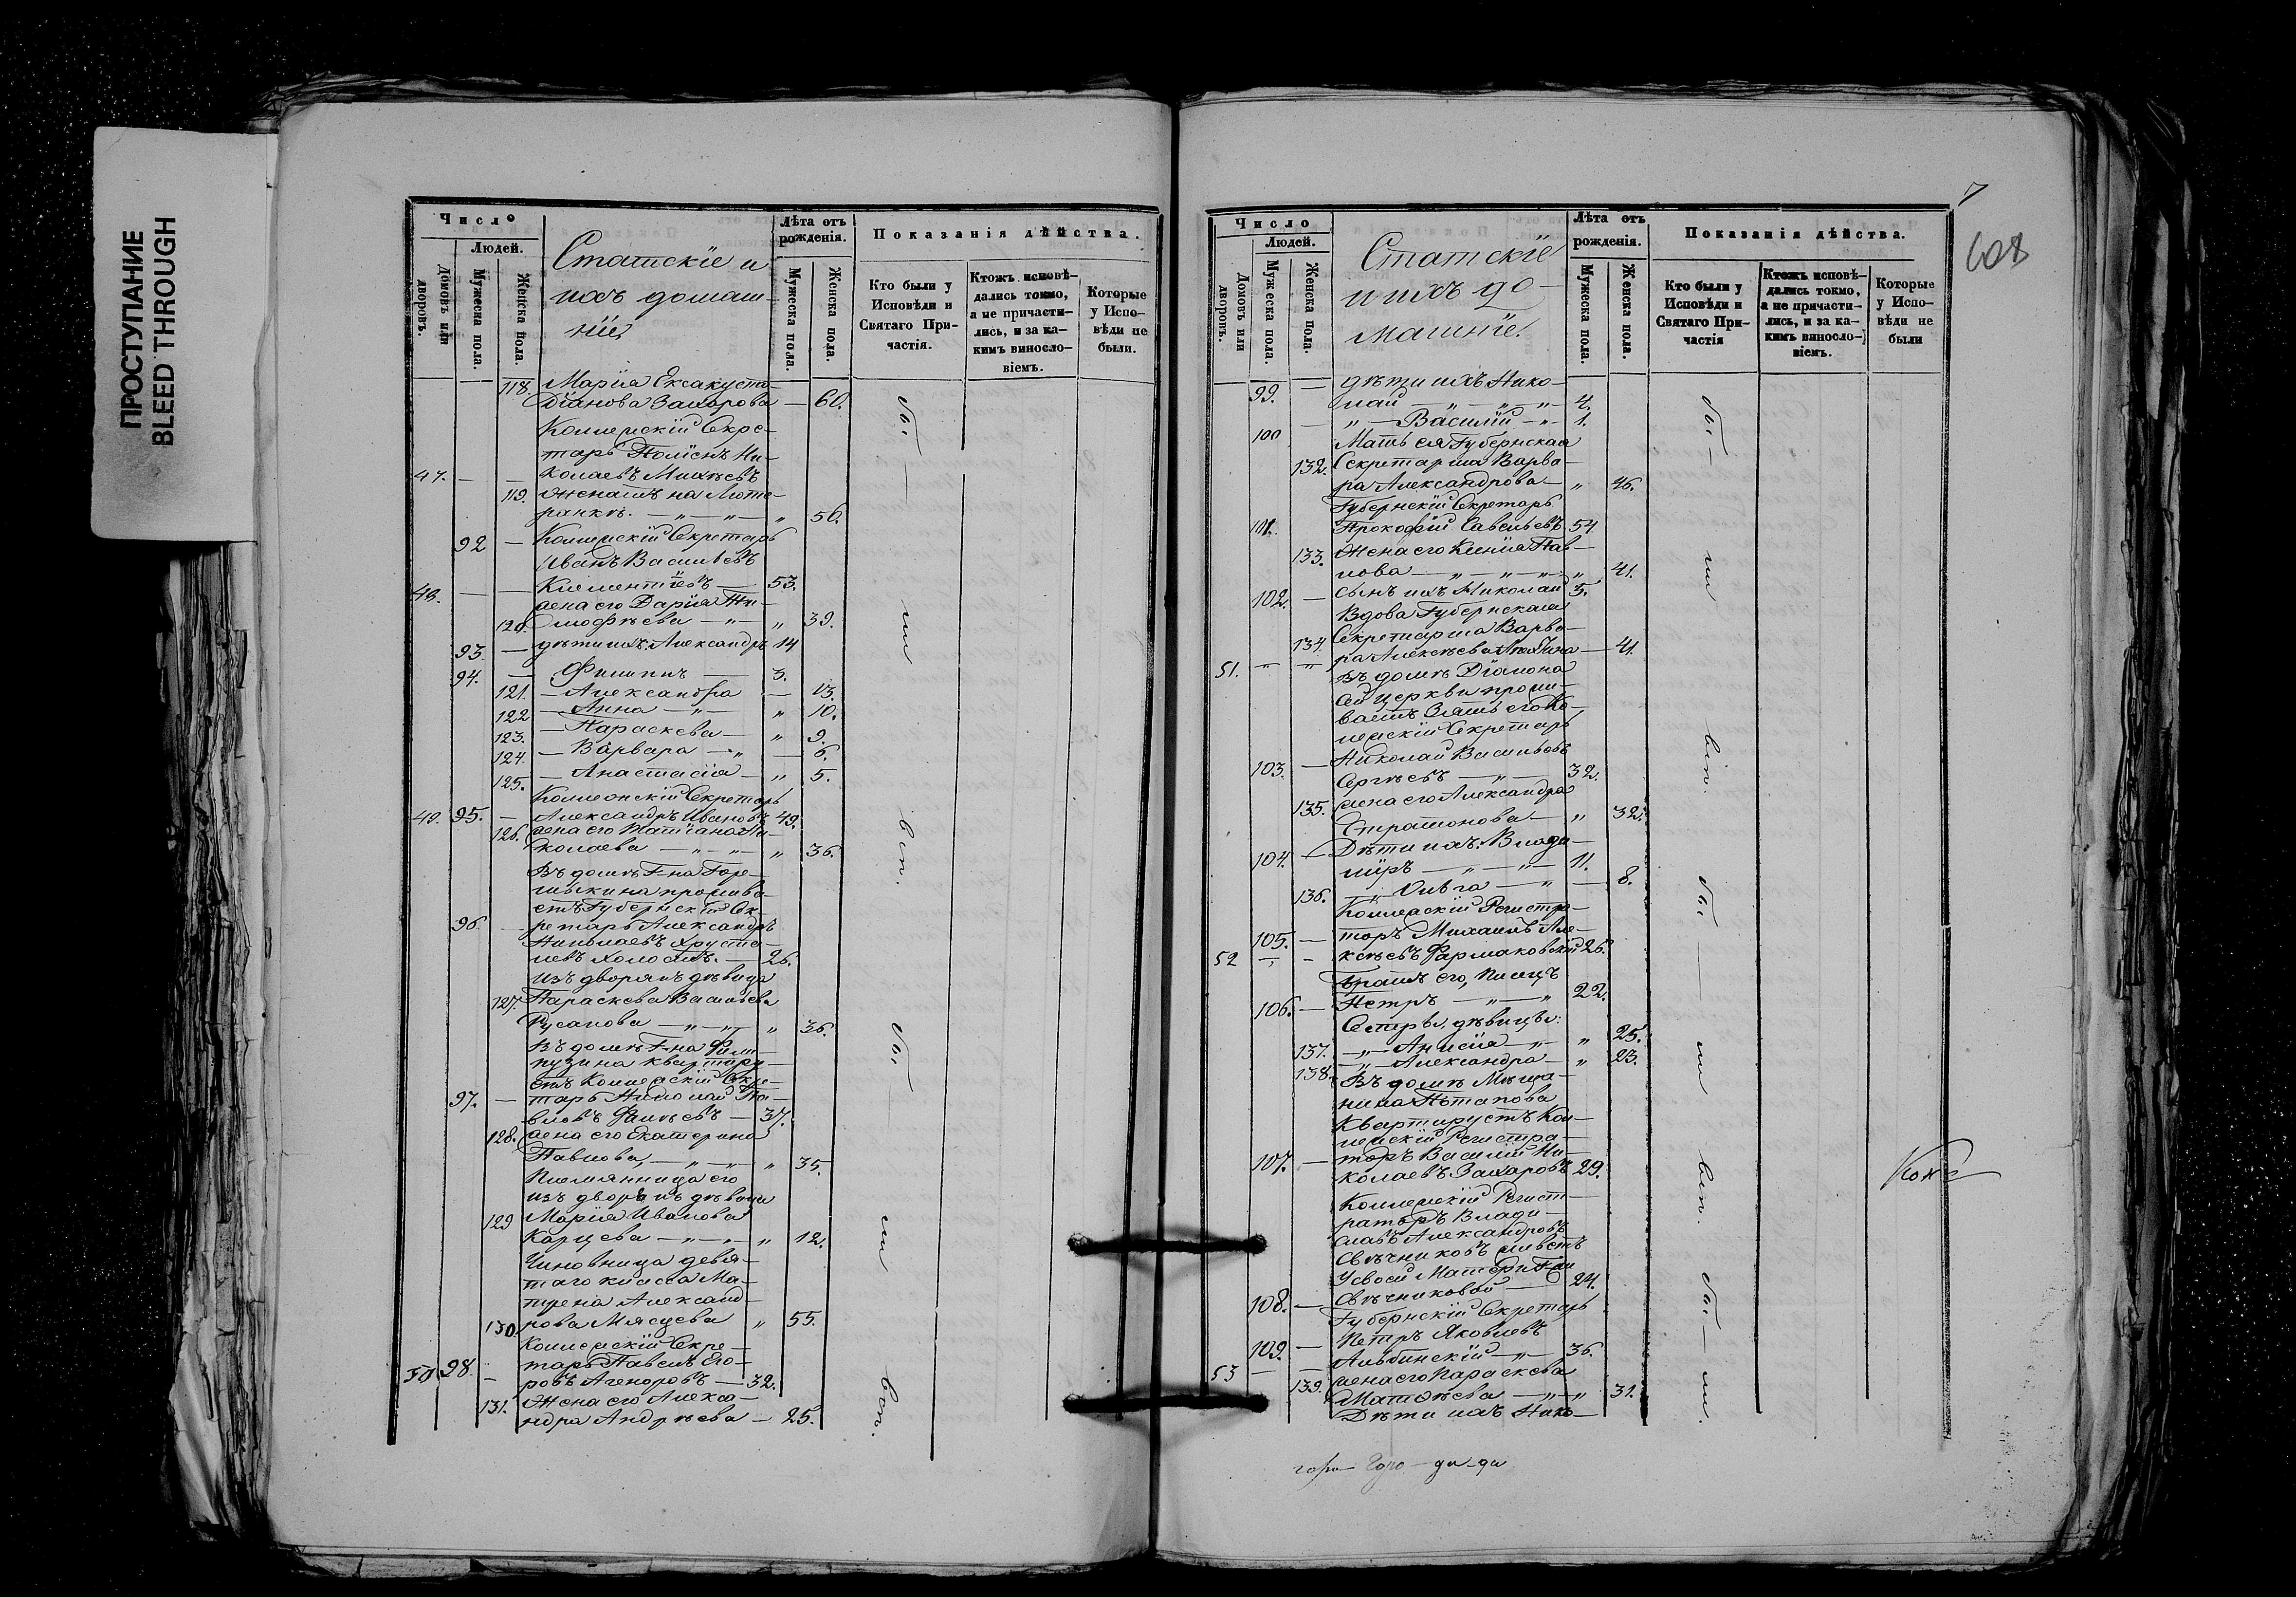 ПРОСТУПАНИЕ
BLEED THROUGH
Число
Людей.
Домовъ или дворовъ.
Мужеска пола.
Женска пола.
Статскіе и
ихъ домаш-
ніе
Лѣта отъ рожденія.
Мужеска пола.
Женска пола.
Показанія дѣйства.
Кто были у Исповѣди и Святаго При-частія.
Ктожъ исповѣ-дались токмо, а не причасти-лись, и за ка-кимъ винослo-віемъ.
Которые у Испо-вѣди не были.
118. Марія Ексакусто-
діанова Захарова — 60.
Коллежскій Секре-
тарь
47. — — колаевъ Михѣевъ
119. Женатъ на Люте-
ранкѣ. — „ — „ — „ 56.
92 — Коллежскій Секретарь
Иванъ Васильевъ
48. — — Климентьевъ — 53.
жена его Дарія Ти-
120. моѳѣева — „ — „ 39.
93. — дѣти ихъ: Александръ 14
94. — Филиппъ — 3.
121. — Александра — 13.
122 — Анна — „ — „ 10.
123. — Параскева — „ 9.
124. — Варвара — „ — 6.
125. — Анастасія — „ 5.
Коллежскій Секретарь
49. 95. — Александръ Ивановъ 49.
126. жена его Татіана Ни-
колаева — „ — „ — „ 36.
Въ домѣ Г-на Горе-
мыкина прожива-
етъ Губернскій Се-
96. — ретарь Александръ
Николаевъ Хруста-
левъ холостъ. — 26.
изъ дворянъ дѣвица
127. Параскева Васильева
Русанова — „ — „ — „ 36.
Въ домѣ Г-на
пузина квартиру-
етъ Коллежскій Секре-
97. — тарь Николай Па-
вловъ — 37.
128. жена его Екатерина
Павлова, — „ — „ — „ 35.
Племянница его
изъ дворянъ дѣвица
129 Марія Иванова
Карцева — „ — „ — „ 12.
Чиновница девя-
таго класса Ма-
трена Александ-
130. рова Мясцева „ 55.
Коллежскій Секре-
50 98 — тарь Павелъ Его-
ровъ Агеноровъ — 32.
131. Жена его Алекса-
ндра Андрѣева — 25.
бы — ли всп. бы — ли всп.
7
608
Число
Людей.
Домовъ или дворовъ.
Мужеска пола.
Женска пола.
Статскіе
и ихъ до-
машніе.
Лѣта отъ рожденія.
Мужеска пола.
Женска пола.
Показанія дѣйства.
Кто были у Исповѣди и Святаго При-частія
Ктожъ исповѣ-дались токмо, а не причасти-лись, и за ка-кимъ винослo-віемъ.
Которые у Испо-вѣди не были
99. — дѣти ихъ Нико-
лай — „ — „ — „ — 4.
100 — „ — Василій — „ — 1.
Мать ея Губернская
132. Секретарша Варва-
ра Александрова — „ 46.
Губернскій Секретарь
101. Прокофій Савельевъ 54
133. Жена его Ксенія Пав-
лова — „ — „ — „ — „ 41.
102. — сынъ ихъ Николай 5.
Вдова Губернская
Секретарша Варва-
51. „ „ 134. ра Алексѣева — 41.
Въ домѣ Діакона
сей церкви прожи-
ваетъ Зять его Ко-
лежскій Секретарь
103. — Николай Васильевъ
Сергѣевъ — „ — 32.
135. жена его Александра
Стратонова — „ 32.
104. — Дѣти ихъ: Влади-
міръ — „ — „ — 11.
136. — „ — Ольга — „ — 8.
Коллежскій Регистра-
105. — торъ Михаилъ Але-
52 — — ксѣевъ Фармаковскій 26.
братъ его, писецъ
106. — Петръ — „ — „ 22.
Сестры, дѣвицы:
137. — „ — Анисія — „ — „ 25.
138. — „ — Александра — „ 23.
Въ домѣ Мѣща-
нина Потапова
Квартируетъ Кол-
лежскій Регистра-
107. — торъ Василій Ни-
колаевъ Захаровъ 29.
Коллежскій Регист-
раторъ Влади-
славъ Александровъ
Свѣчниковъ живетъ
У своей Матери Г-жи
108. — Свѣчниковой — 24.
Губернскій Секретарь
109. — Петръ Яковлевъ
53 — — Альбинскій — „ — 36.
139. жена его Параскева
Матвѣева — „ — „ 31.
Дѣти ихъ Нико-
бы — ли всп. бы — ли всп. бы — ли.